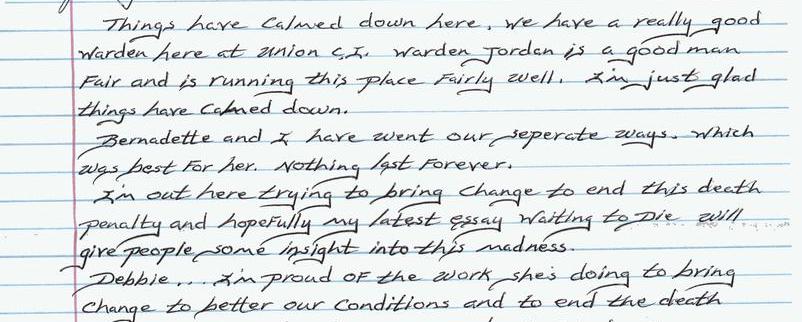 Things have Calmed down here, we have a really good
Warden here at Union C.I. Warden Jordan is a good man
Fair and is running this place Fairly well. I'm just glad
things have Calmed down.
Bernadette and I have went our seperate ways. Which
was best For her. Nothing last Forever.
I'm out here trying to bring Change to end this death
penalty and hopeFully my latest essay Waiting to Die will
give people some insight into this madness.
Debbie... I'm proud OF the work she's doing to bring
Change to better our Conditions and to end the death